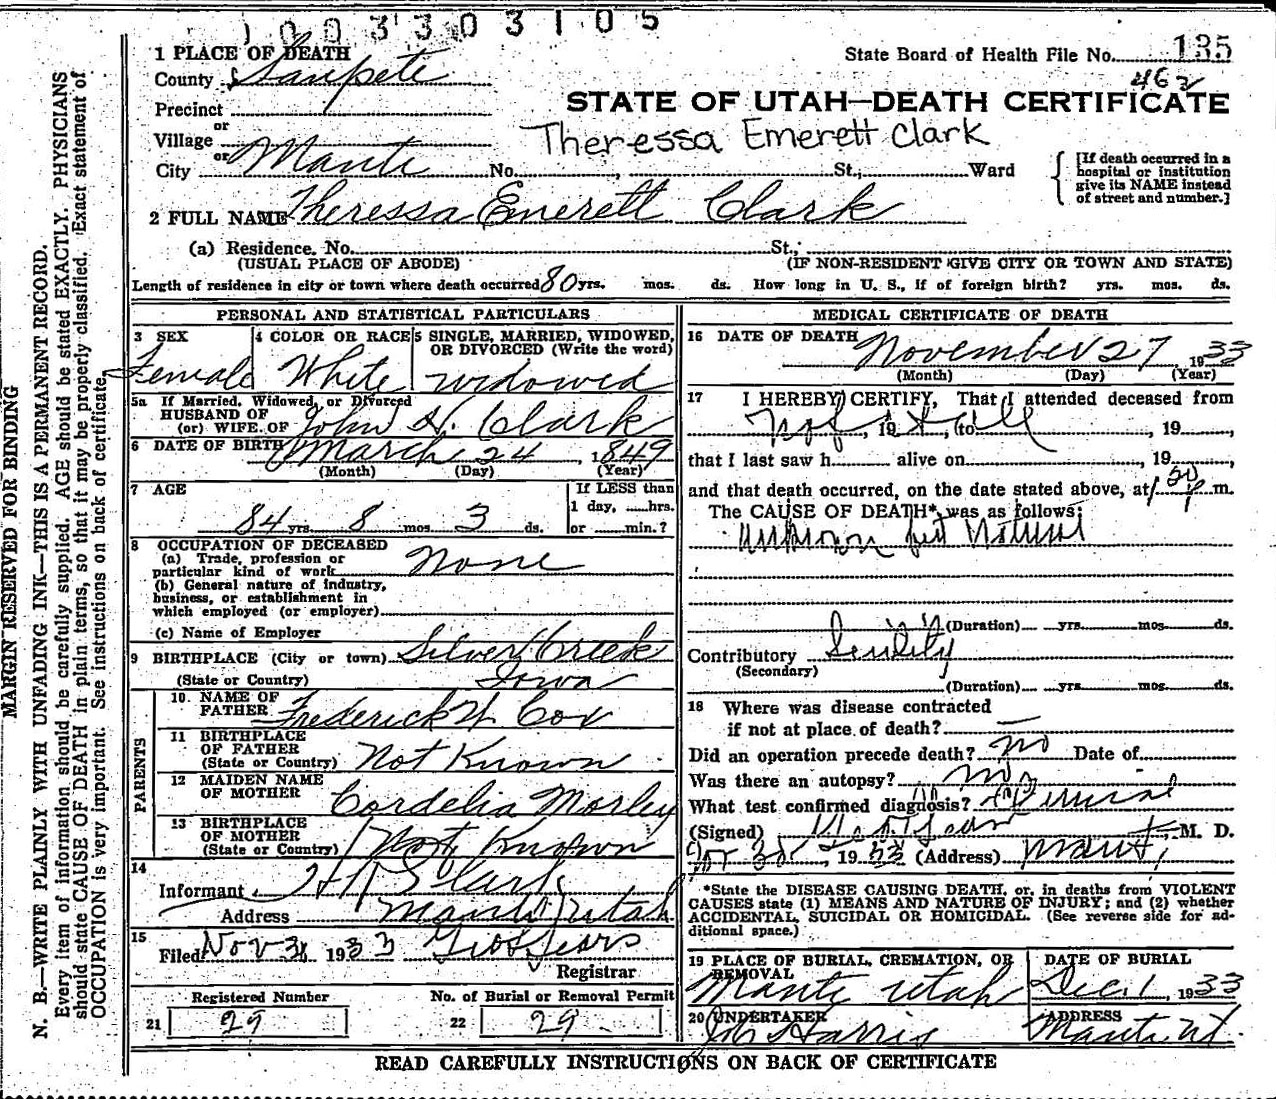 1003303105
1 PLACE OF DEATH
State Board of Health File No. 135
County Sanpete
462
Precinct
STATE OF UTAH—DEATH CERTIFICATE
or
Village
Theressa Emerett Clark
or
City Manti No. , St., Ward
[If death occurred in a
hospital or institution
give its NAME instead
of street and number.]
2 FULL NAME Theressa Emerett Clark
(a) Residence. No. St.,
(USUAL PLACE OF ABODE) (IF NON-RESIDENT GIVE CITY OR TOWN AND STATE)
Length of residence in city or town where death occurred 80 yrs. mos. ds. How long in U. S., if of foreign birth? yrs. mos. ds.
PERSONAL AND STATISTICAL PARTICULARS
3 SEX 4 COLOR OR RACE 5 SINGLE, MARRIED, WIDOWED,
OR DIVORCED (Write the word)
Female White widowed
5a If Married, Widowed, or Divorced
HUSBAND OF
(or) WIFE OF John H. Clark
6 DATE OF BIRTH March 24, 1849
(Month) (Day) (Year)
7 AGE If LESS than
1 day, hrs.
84 yrs. 8 mos. 3 ds. or min.?
8 OCCUPATION OF DECEASED
(a) Trade, profession or
particular kind of work None
(b) General nature of industry,
business, or establishment in
which employed (or employer)
(c) Name of Employer
9 BIRTHPLACE (City or town) Silver Creek
(State or Country) Iowa
PARENTS
10. NAME OF
FATHER Frederick W Cox
11 BIRTHPLACE
OF FATHER
(State or Country) Not Known
12 MAIDEN NAME
OF MOTHER Cordelia Morley
13 BIRTHPLACE
OF MOTHER
(State or Country) Not Known
14
Informant Clark
Address Manti Utah
15
Filed Nov 30 1933 Sears
Registrar
Registered Number No. of Burial or Removal Permit
21 29 22 29
MEDICAL CERTIFICATE OF DEATH
16 DATE OF DEATH
November 27 1933
(Month) (Day) (Year)
17 I HEREBY CERTIFY, That I attended deceased from
Not , 19 at , to all , 19 ,
that I last saw h alive on , 19 ,
and that death occurred, on the date stated above, at 1 30 P m.
The CAUSE OF DEATH*, was as follows:
Unknown but Natural
(Duration) yrs. mos. ds.
Contributory Senility
(Secondary)
(Duration) yrs. mos. ds.
18 Where was disease contracted
if not at place of death? —
Did an operation precede death? no Date of
Was there an autopsy? no
What test confirmed diagnosis?
(Signed) Sears M. D.
Nov 30, 1933 (Address) Manti
*State the DISEASE CAUSING DEATH, or, in deaths from VIOLENT
CAUSES state (1) MEANS AND NATURE OF INJURY; and (2) whether
ACCIDENTAL, SUICIDAL OR HOMICIDAL. (See reverse side for ad-
ditional space.)
19 PLACE OF BURIAL, CREMATION, OR
REMOVAL DATE OF BURIAL
Manti Utah Dec. 1, 1933
20 UNDERTAKER ADDRESS
Harris Manti Ut.
READ CAREFULLY INSTRUCTIONS ON BACK OF CERTIFICATE
MARGIN RESERVED FOR BINDING
N. B.—WRITE PLAINLY WITH UNFADING INK—THIS IS A PERMANENT RECORD.
Every item of information should be carefully supplied. AGE should be stated EXACTLY. PHYSICIANS
should state CAUSE OF DEATH in plain terms, so that it may be properly classified. Exact statement of
OCCUPATION is very important. See instructions on back of certificate.